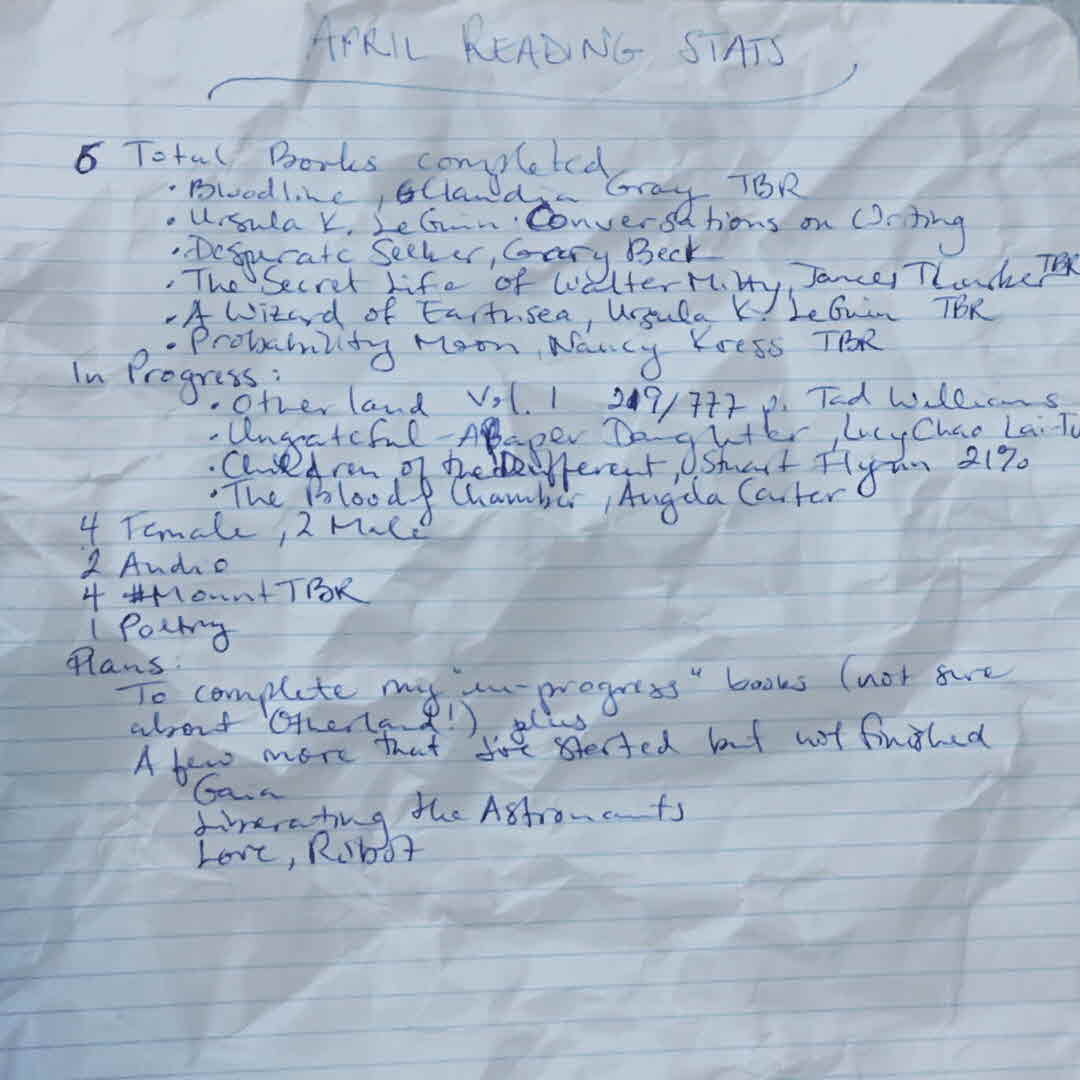 APRIL READING STATS
6 Total Books completed
• Bloodline, Claudia Gray TBR
• Ursula K. LeGuin: Conversations on Writing
• Desperate Seeker, Gary Beck
• The Secret Life of Walter Mitty, James Thurber TBR
• A Wizard of Earthsea, Ursula K. LeGuin TBR
• Probability Moon, Nancy Kress TBR
In Progress:
• Otherland Vol. 1 219/777 p. Tad Williams
• Ungrateful - A Paper Daughter, Lucy Chao Lai-Tu
• Children of the Different, Stuart Flynn 21%
• The Bloody Chamber, Angela Carter
4 Female, 2 Male
2 Audio
4 #MountTBR
1 Poetry
Plans:
To complete my "in-progress" books (not sure
about Otherland!) plus
A few more that I've started but not finished
Gaia
Liberating the Astronauts
Love, Robot